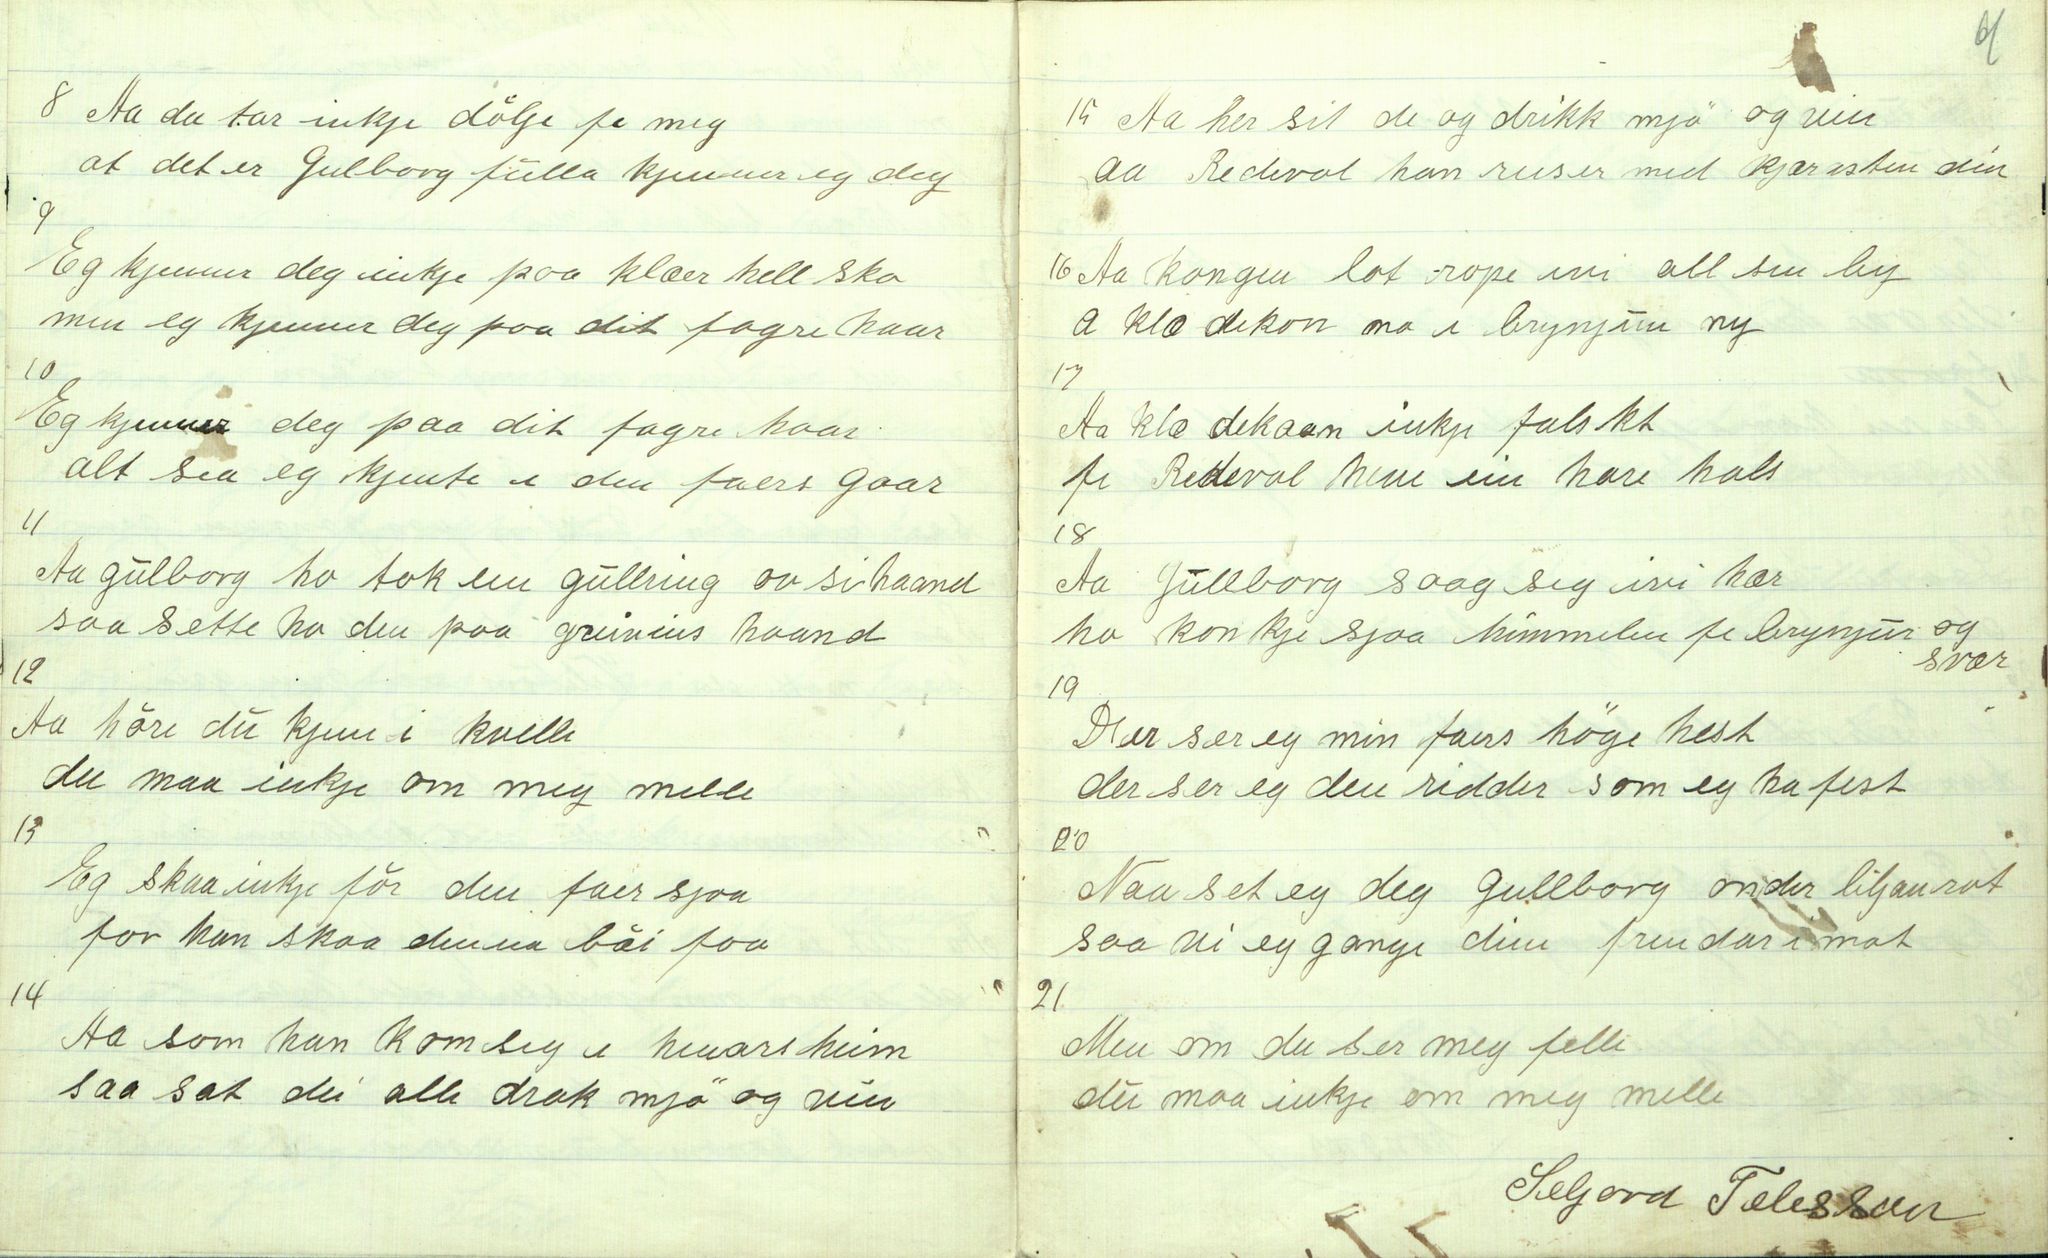 8 Aa du tar inkje dölge fe meg
at det er Gulborg fulla kjenner eg deg
9
Eg kjenner deg inkje paa klæer hell sko
men eg kjenner deg paa dit fagre haar
10
Eg kjenner deg paa dit fagre haar
alt sea eg kjente i den faers gaar
11
Aa gulborg ho tok ein gullring av si haand
saa sette ho den paa greivins haand
12
Aa höre du kjem i kvelle
du maa inkje om meg melle
13
Eg skaa inkje för den faer sjaa
for han skaa denna böi faa
14
Aa som han kom seg i heim
saa sat dei alle drak mjö og vin
61
15 Aa her sit de og drikk mjö og vin
aa Redevol han reiser med kjæresten din
16 Aa kongen lot rope ivi all sin by
a klæ dikon no i brynjun ny
17
Aa klæ dekaan inkje falskt
fe Redevol hene ein hare hals
18
Aa Gullborg saag seg ivi hær
ho konkje sjaa himmelen fe brynjur og
svær
19
Der ser eg min faers höge hest
der ser eg den ridder som eg ha fest
20
Naa set eg deg Gullborg onder liljanrot
saa vi eg gange dine frendar i mot
21
Men om du ser meg felle
du maa inkje om meg melle
Seljord Telessaen